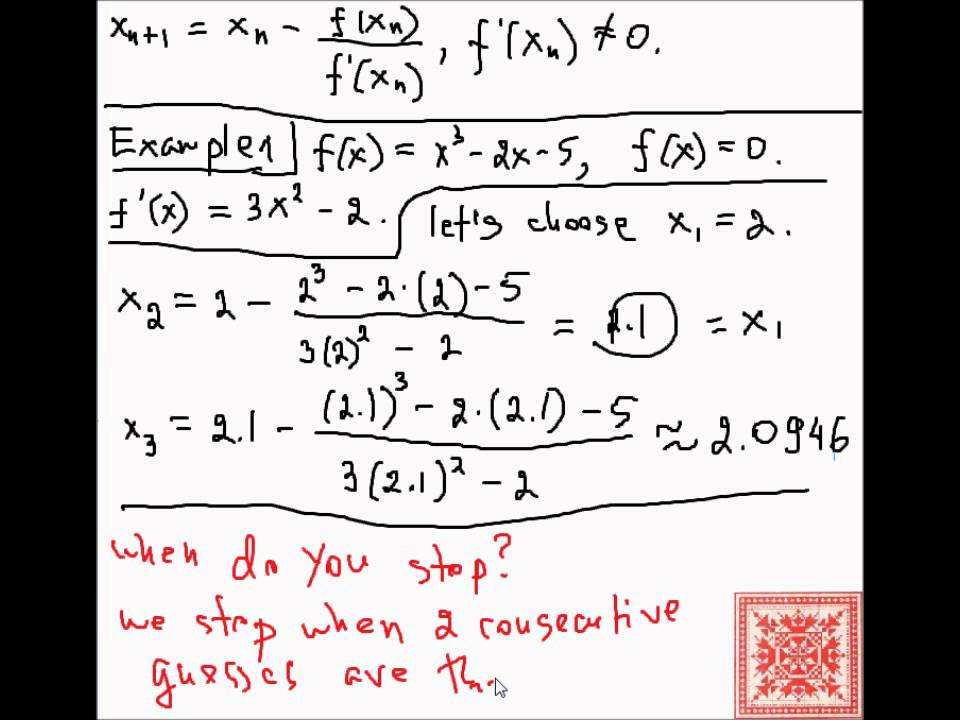 xₙ₊₁ = xₙ − f(xₙ)/f'(xₙ), f'(xₙ) ≠ 0.
Example 1 f(x) = x³ − 2x − 5, f(x) = 0.
f'(x) = 3x² − 2. let's choose x₁ = 2.
x₂ = 2 − (2³ − 2·(2) − 5)/(3(2)² − 2) = 2.1 = x₁
x₃ = 2.1 − ((2.1)³ − 2·(2.1) − 5)/(3(2.1)² − 2) ≈ 2.0946
when do you stop?
we stop when 2 consecutive
guesses are